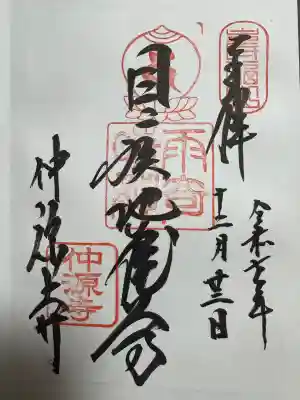 奉拝
令和六年
十二月廿三日
目疾地蔵尊
雨奇
仲源寺
仲源寺